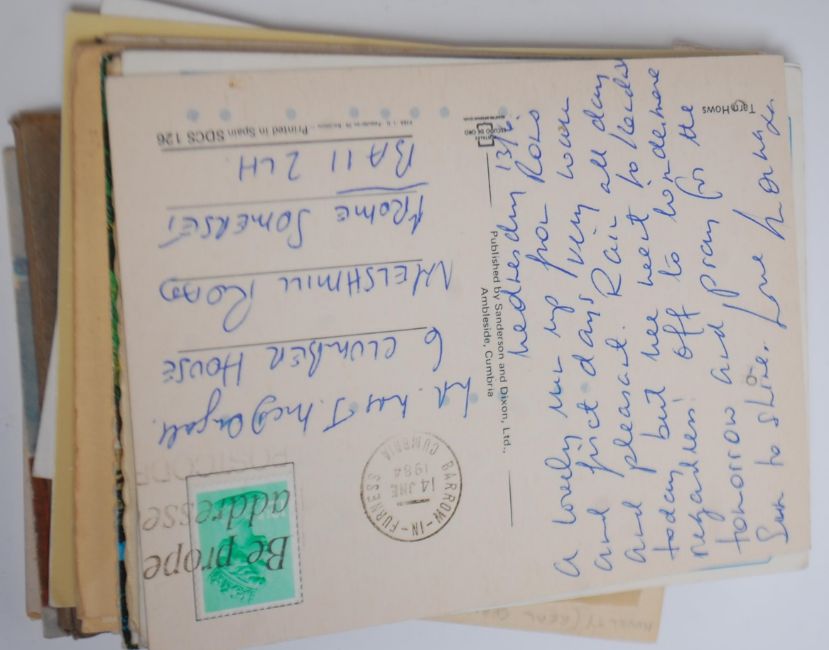 Tarn Hows
Wednesday 13/6.
A lovely run up from Ross
and first days very warm
and pleasant. Rain all day
today but we went to
regardless! off to
tomorrow and pray for the
Sun to shine. Love
Published by Sanderson and Dixon, Ltd.,
Ambleside, Cumbria
ESCUDO DE ORO
Printed in Spain SDCS 126
BARROW-IN-FURNESS
14 JNE
1984
CUMBRIA
Be prope
addresse
POSTCODE
Mr. Mrs J. McDougall.
6 CLUMBER HOUSE
WELSHMILL ROAD
FROME SOMERSET
BA11 2LH.